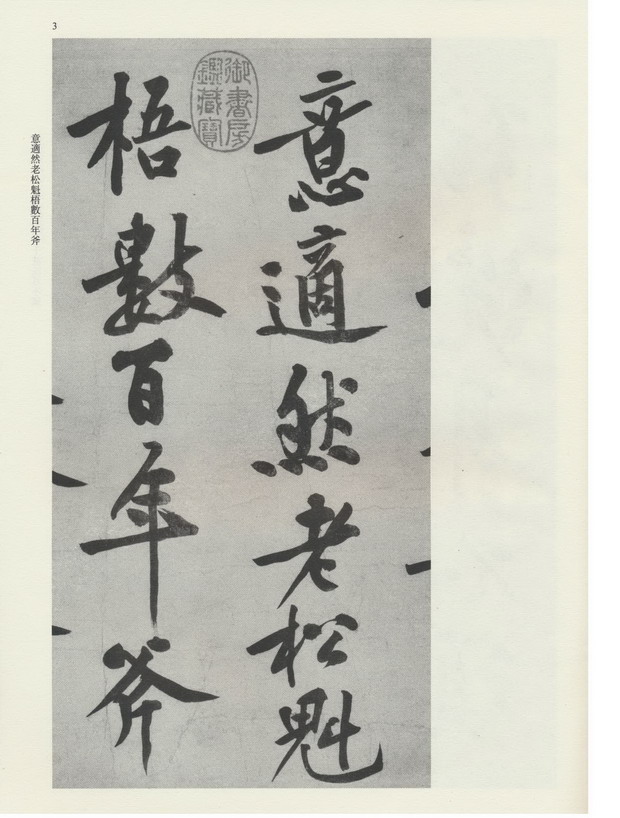 3
意適然老松魁
梧數百年斧
御書房
鑑藏寶
意適然老松魁梧數百年斧